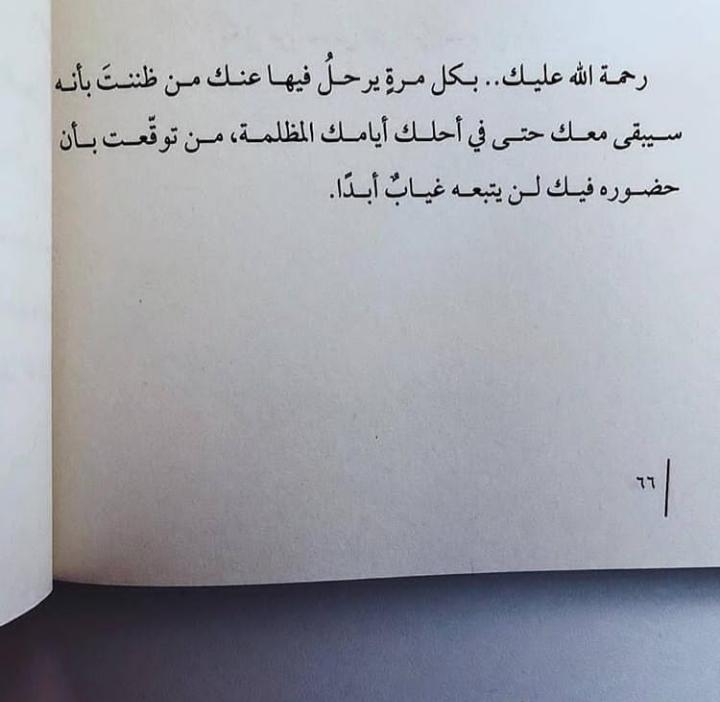 رحمة الله عليك.. بكل مرةٍ يرحلُ فيها عنك من ظننتَ بأنه
سيبقى معك حتى في أحلك أيامك المظلمة، من توقّعت بأن
حضوره فيك لن يتبعه غيابٌ أبدًا.
٦٦